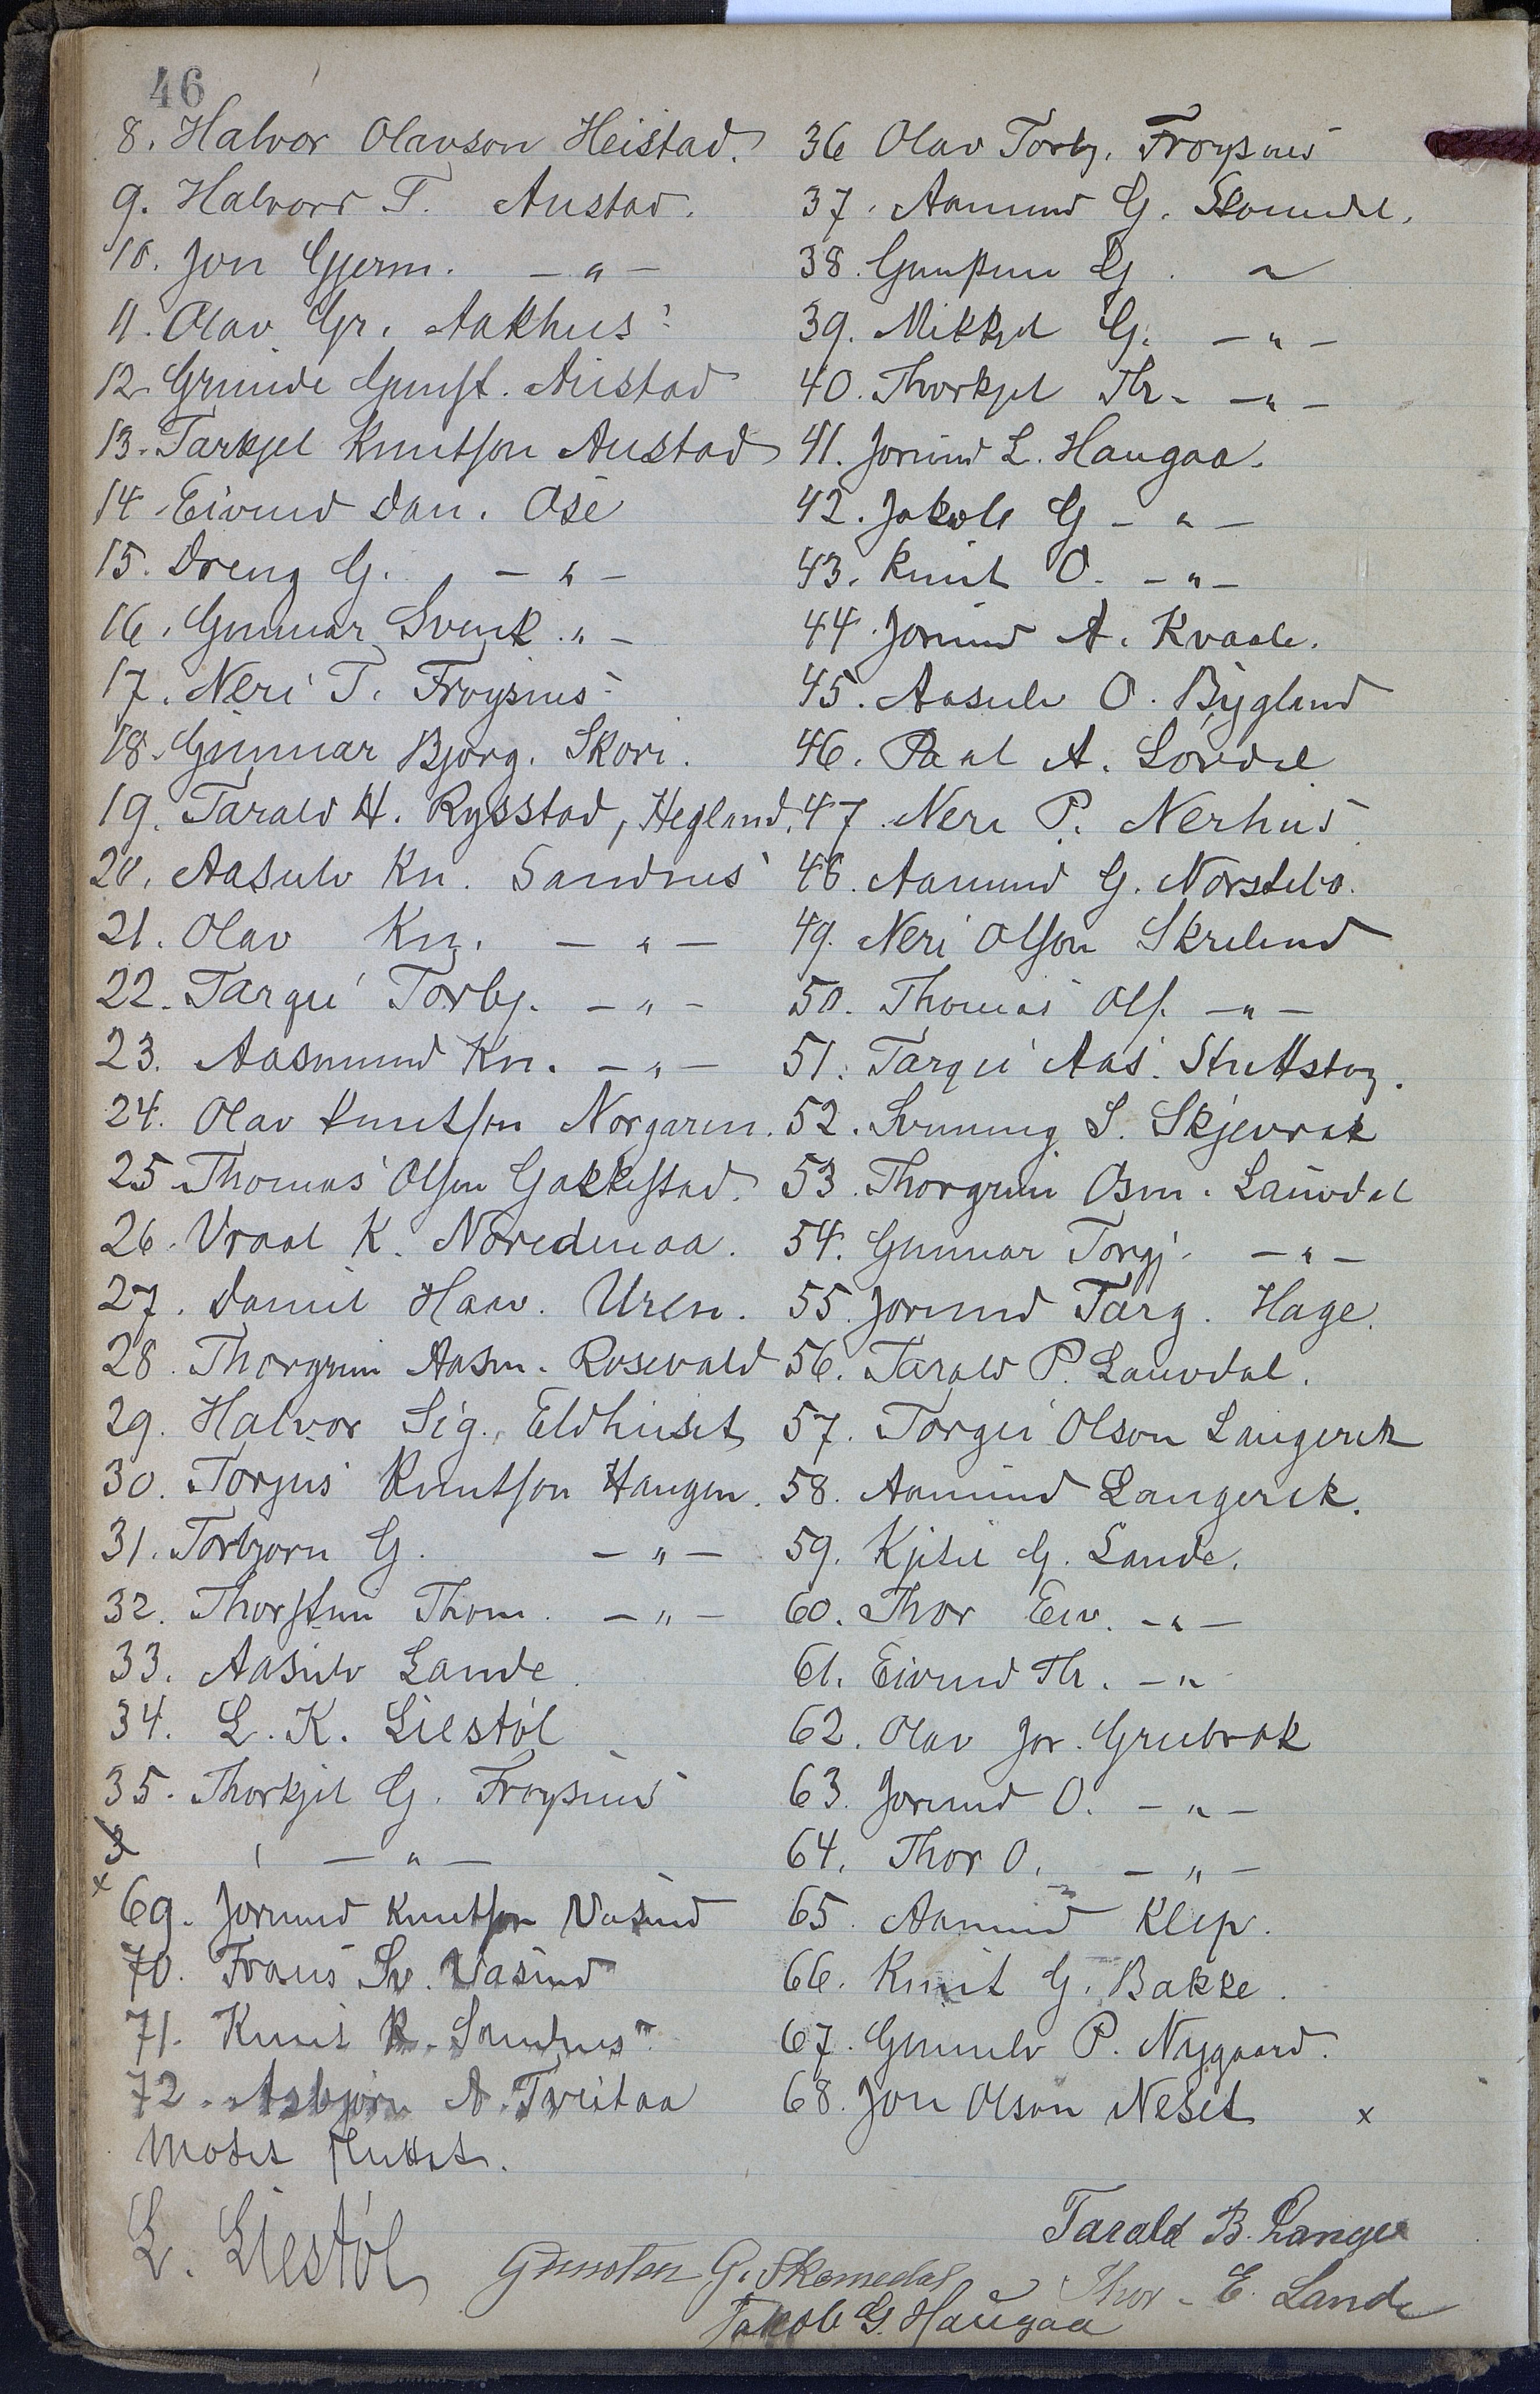 46
8. Halvor Olavson Heistad.
9. Halvord T. Austad.
10. Jon Gjerm. — " —
11. Olav Gr. Aakhus
12. Grunde Gunst. Austad
13. Tarkjel Knutson Austad
14. Eivind Dan. Ose
15. Dreng G. — " —
16. Gunnar Sveuk. " —
17. Neri T. Frøysnes
18. Gunnar Bjørg. Skori.
19. Tarald H. Rysstad, Hegland.
20. Aasulv Kn. Sandnes
21. Olav Kn. — " —
22. Targei Torbj. — " —
23. Aasmund Kn. — " —
24. Olav Knutson Norgaren.
25. Thomas Olsen Gakkestad.
26. Vraal K. Noredenaa.
27. Daniel Haav. Uren.
28. Thorgrim Aasm. Rosevald
29. Halvor Sig. Eldhuset
30. Torjus Knutson Haugen.
31. Torbjorn G. — " —
32. Thorstein Thom. — " —
33. Aasulv Lande.
34. L. K. Liestøl
35. Thorkjel G. Froysnes
3 — " —
x
69. Jorund Knutson Vasend
70. Frans Sv. Vasend
71. Knut K. Sandnes
72. Asbjørn A. Tveitaa
Møtet sluttet.
36 Olav Torbj. Froysnes
37. Aamund G. Skomedal.
38. Gunstein G. "
39. Mikkjel G. — " —
40. Thorkjel Th. — " —
41. Jorund L. Haugaa.
42. Jakob G — " —
43. Knut O. — " —
44. Jorund A. Kvaale.
45. Aasulv O. Bygland
46. Paal A. Lovdal
47. Neri P. Nerhus
48. Aamund G. Norstebo.
49. Neri Olson Skreland
50. Thomas Ols. — " —
51. Targei Aas. Stuttstog.
52. Svenung S. Skjevrak
53. Thorgrim Osm. Lauvdal
54. Gunnar Torgj. — " —
55. Jorund Targ. Hage.
56. Tarald P. Lauvdal.
57. Torgei Olson Langerak
58. Aamund Langerak.
59. Kjetil G. Lande.
60. Thor Eiv. — " —
61. Eivind Th. — "
62. Olav Jor. Grubrok
63. Jorund O. — " —
64. Thor O. — " —
65. Aamund Klep.
66. Knut G. Bakke.
67. Gunnulv P. Nygaard.
68. Jon Olson Neset x
L. Liestøl
Gunsten G. Skomedal
Jakob G. Haugaa
Tarald B. Langei
Thor E. Lande